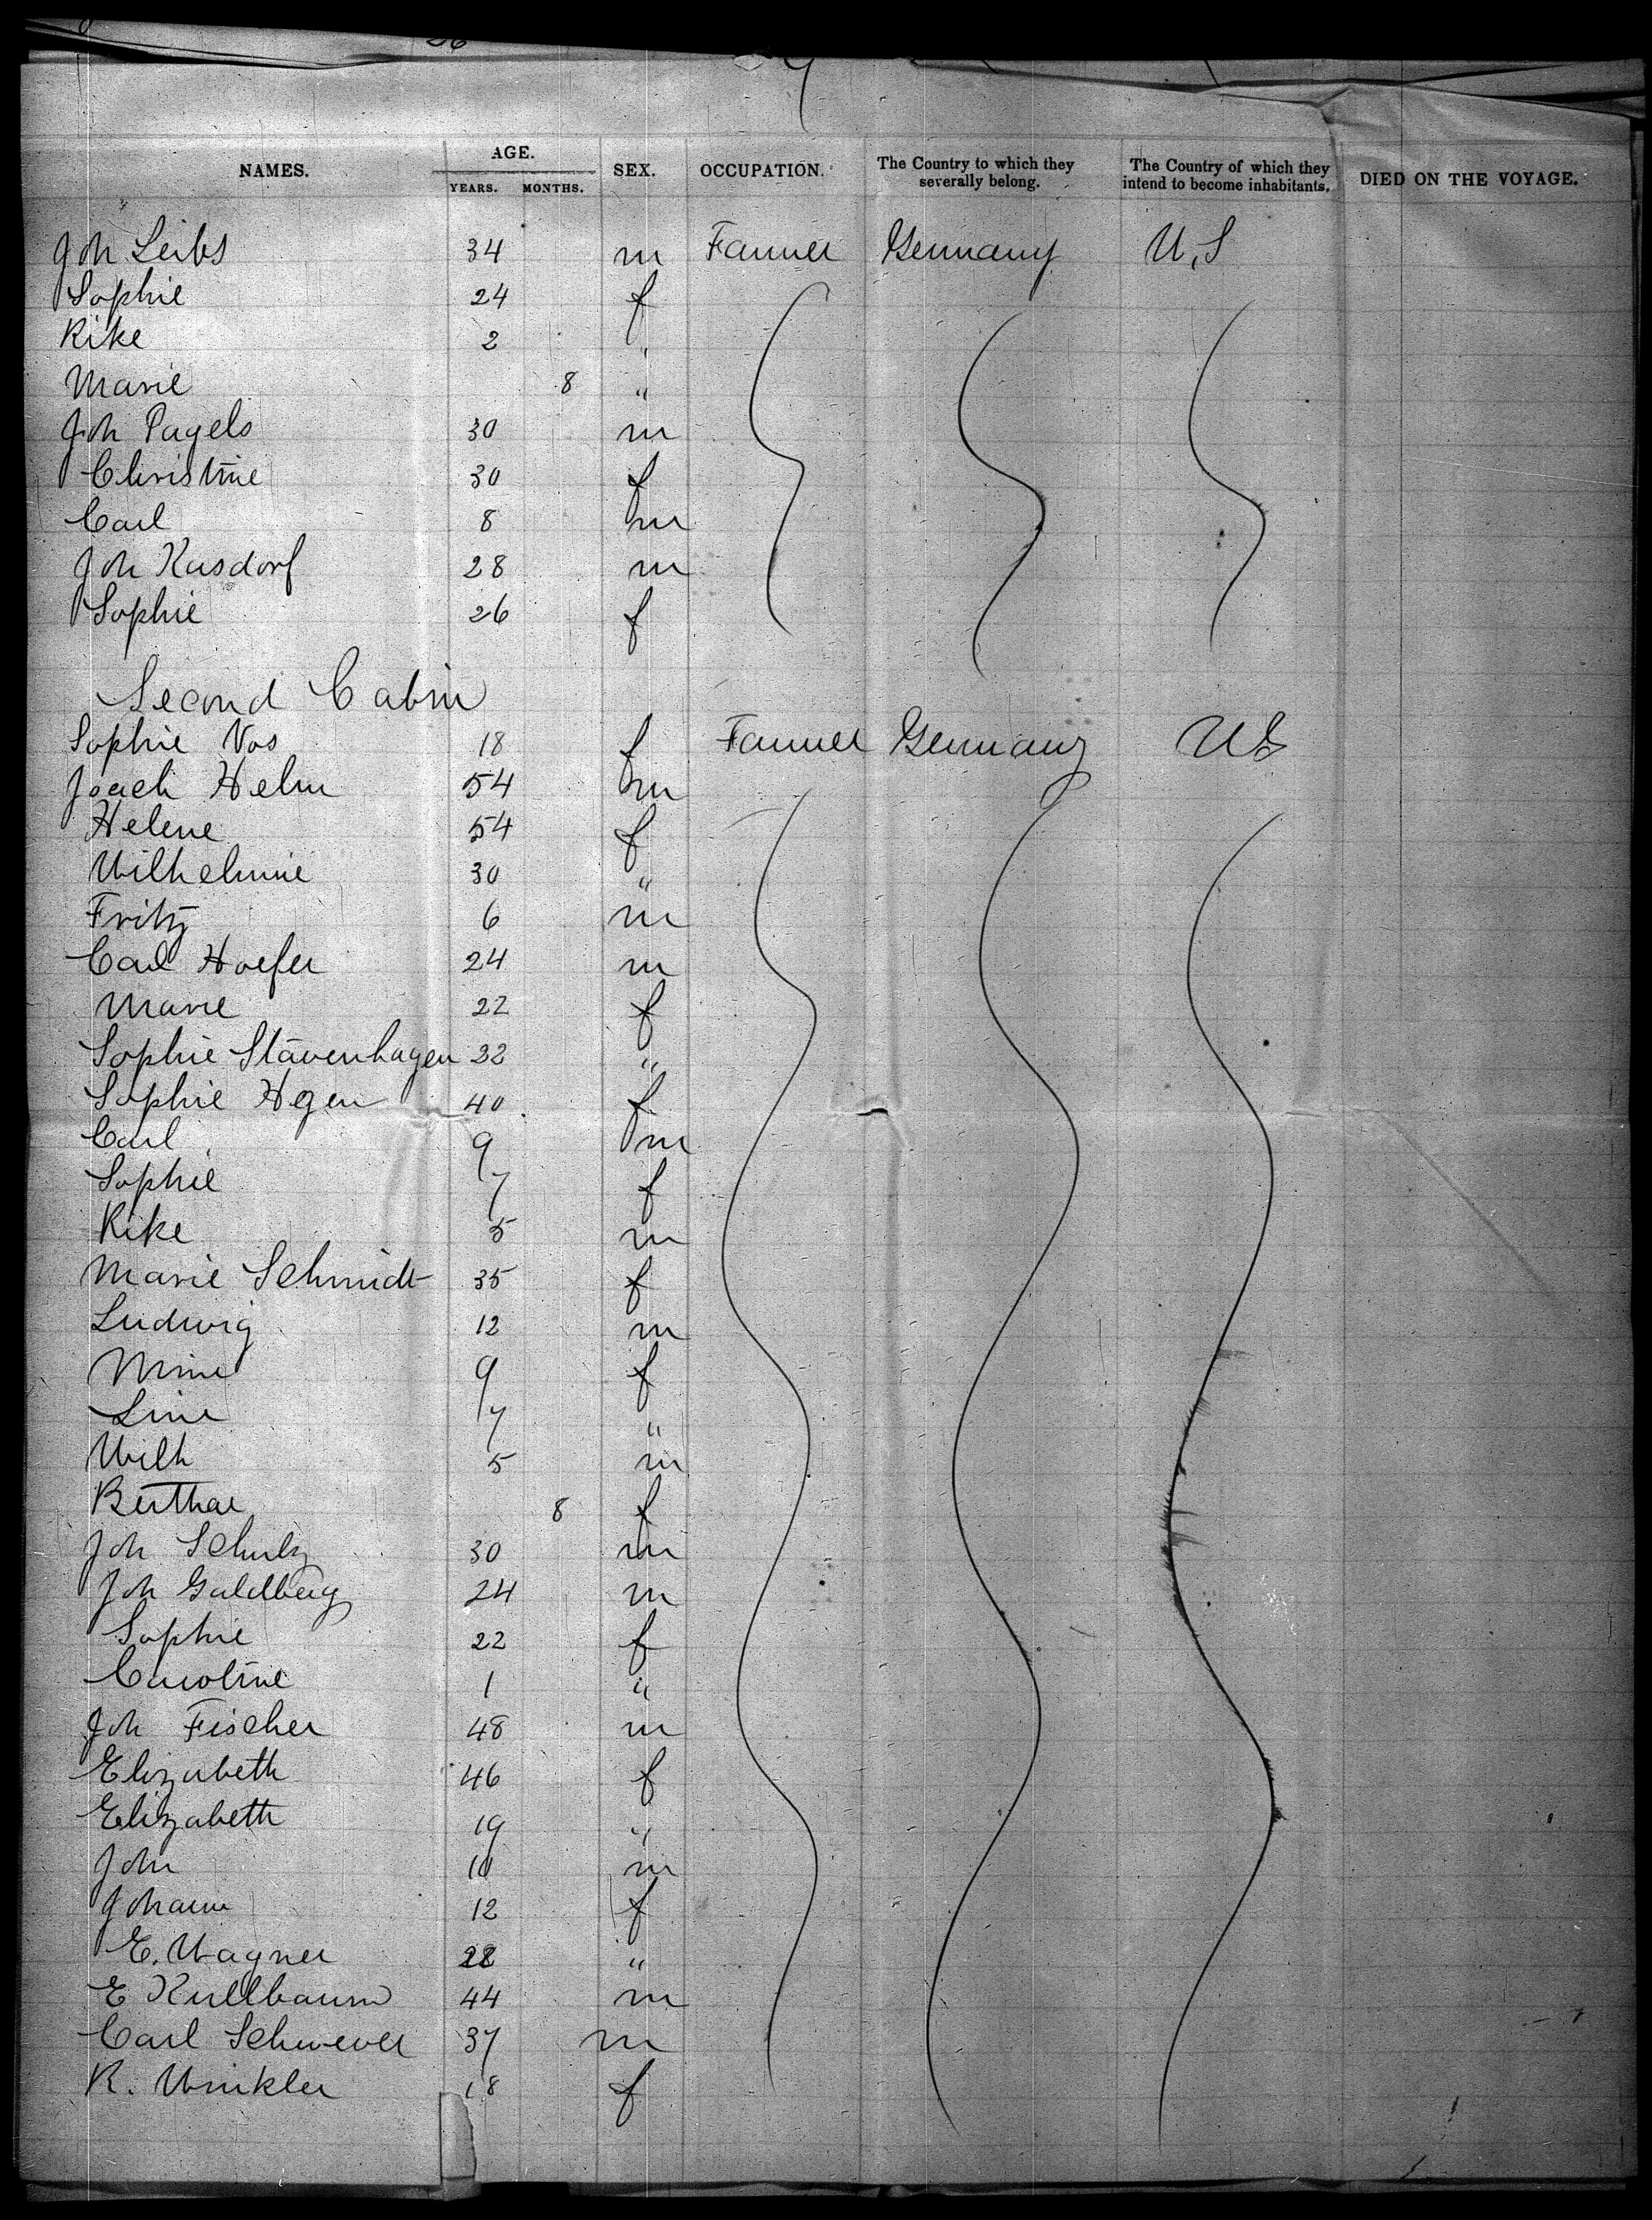 NAMES. AGE. SEX. OCCUPATION. The Country to which they severally belong. The Country of which they intend to become inhabitants. DIED ON THE VOYAGE.
YEARS. MONTHS.
Joh Leibs 34 m Farmer Germany U.S
Sophie 24 f
Rike 2 "
Marie 8 "
Joh Pagels 30 m
Christine 30 f
Carl 8 m
Joh Kasdorf 28 m
Sophie 26 f
Second Cabin
Sophie Vos 18 f Farmer Germany US
Joach Helm 54 m
Helene 54 f
Wilhelmine 30 "
Fritz 6 m
Carl Hoefer 24 m
Marie 22 f
Sophie Stavenhagen 22 "
Sophie Hgen 40 f
Carl 9 m
Sophie 7 f
Rike 5 m
Marie Schmidt 35 f
Ludwig 12 m
Mine 9 f
Line 7 "
Wilh 5 m
Berthae 8 f
Joh Schulz 30 m
Joh Goldberg 24 m
Sophie 22 f
Caroline 1 "
Joh Fischer 48 m
Elizabeth 46 f
Elizabeth 19 "
John 10 m
Johann 12 f
E. Wagner 28 "
E Kullbaum 44 m
Carl Schwever 37 m
R. Winkler 18 f